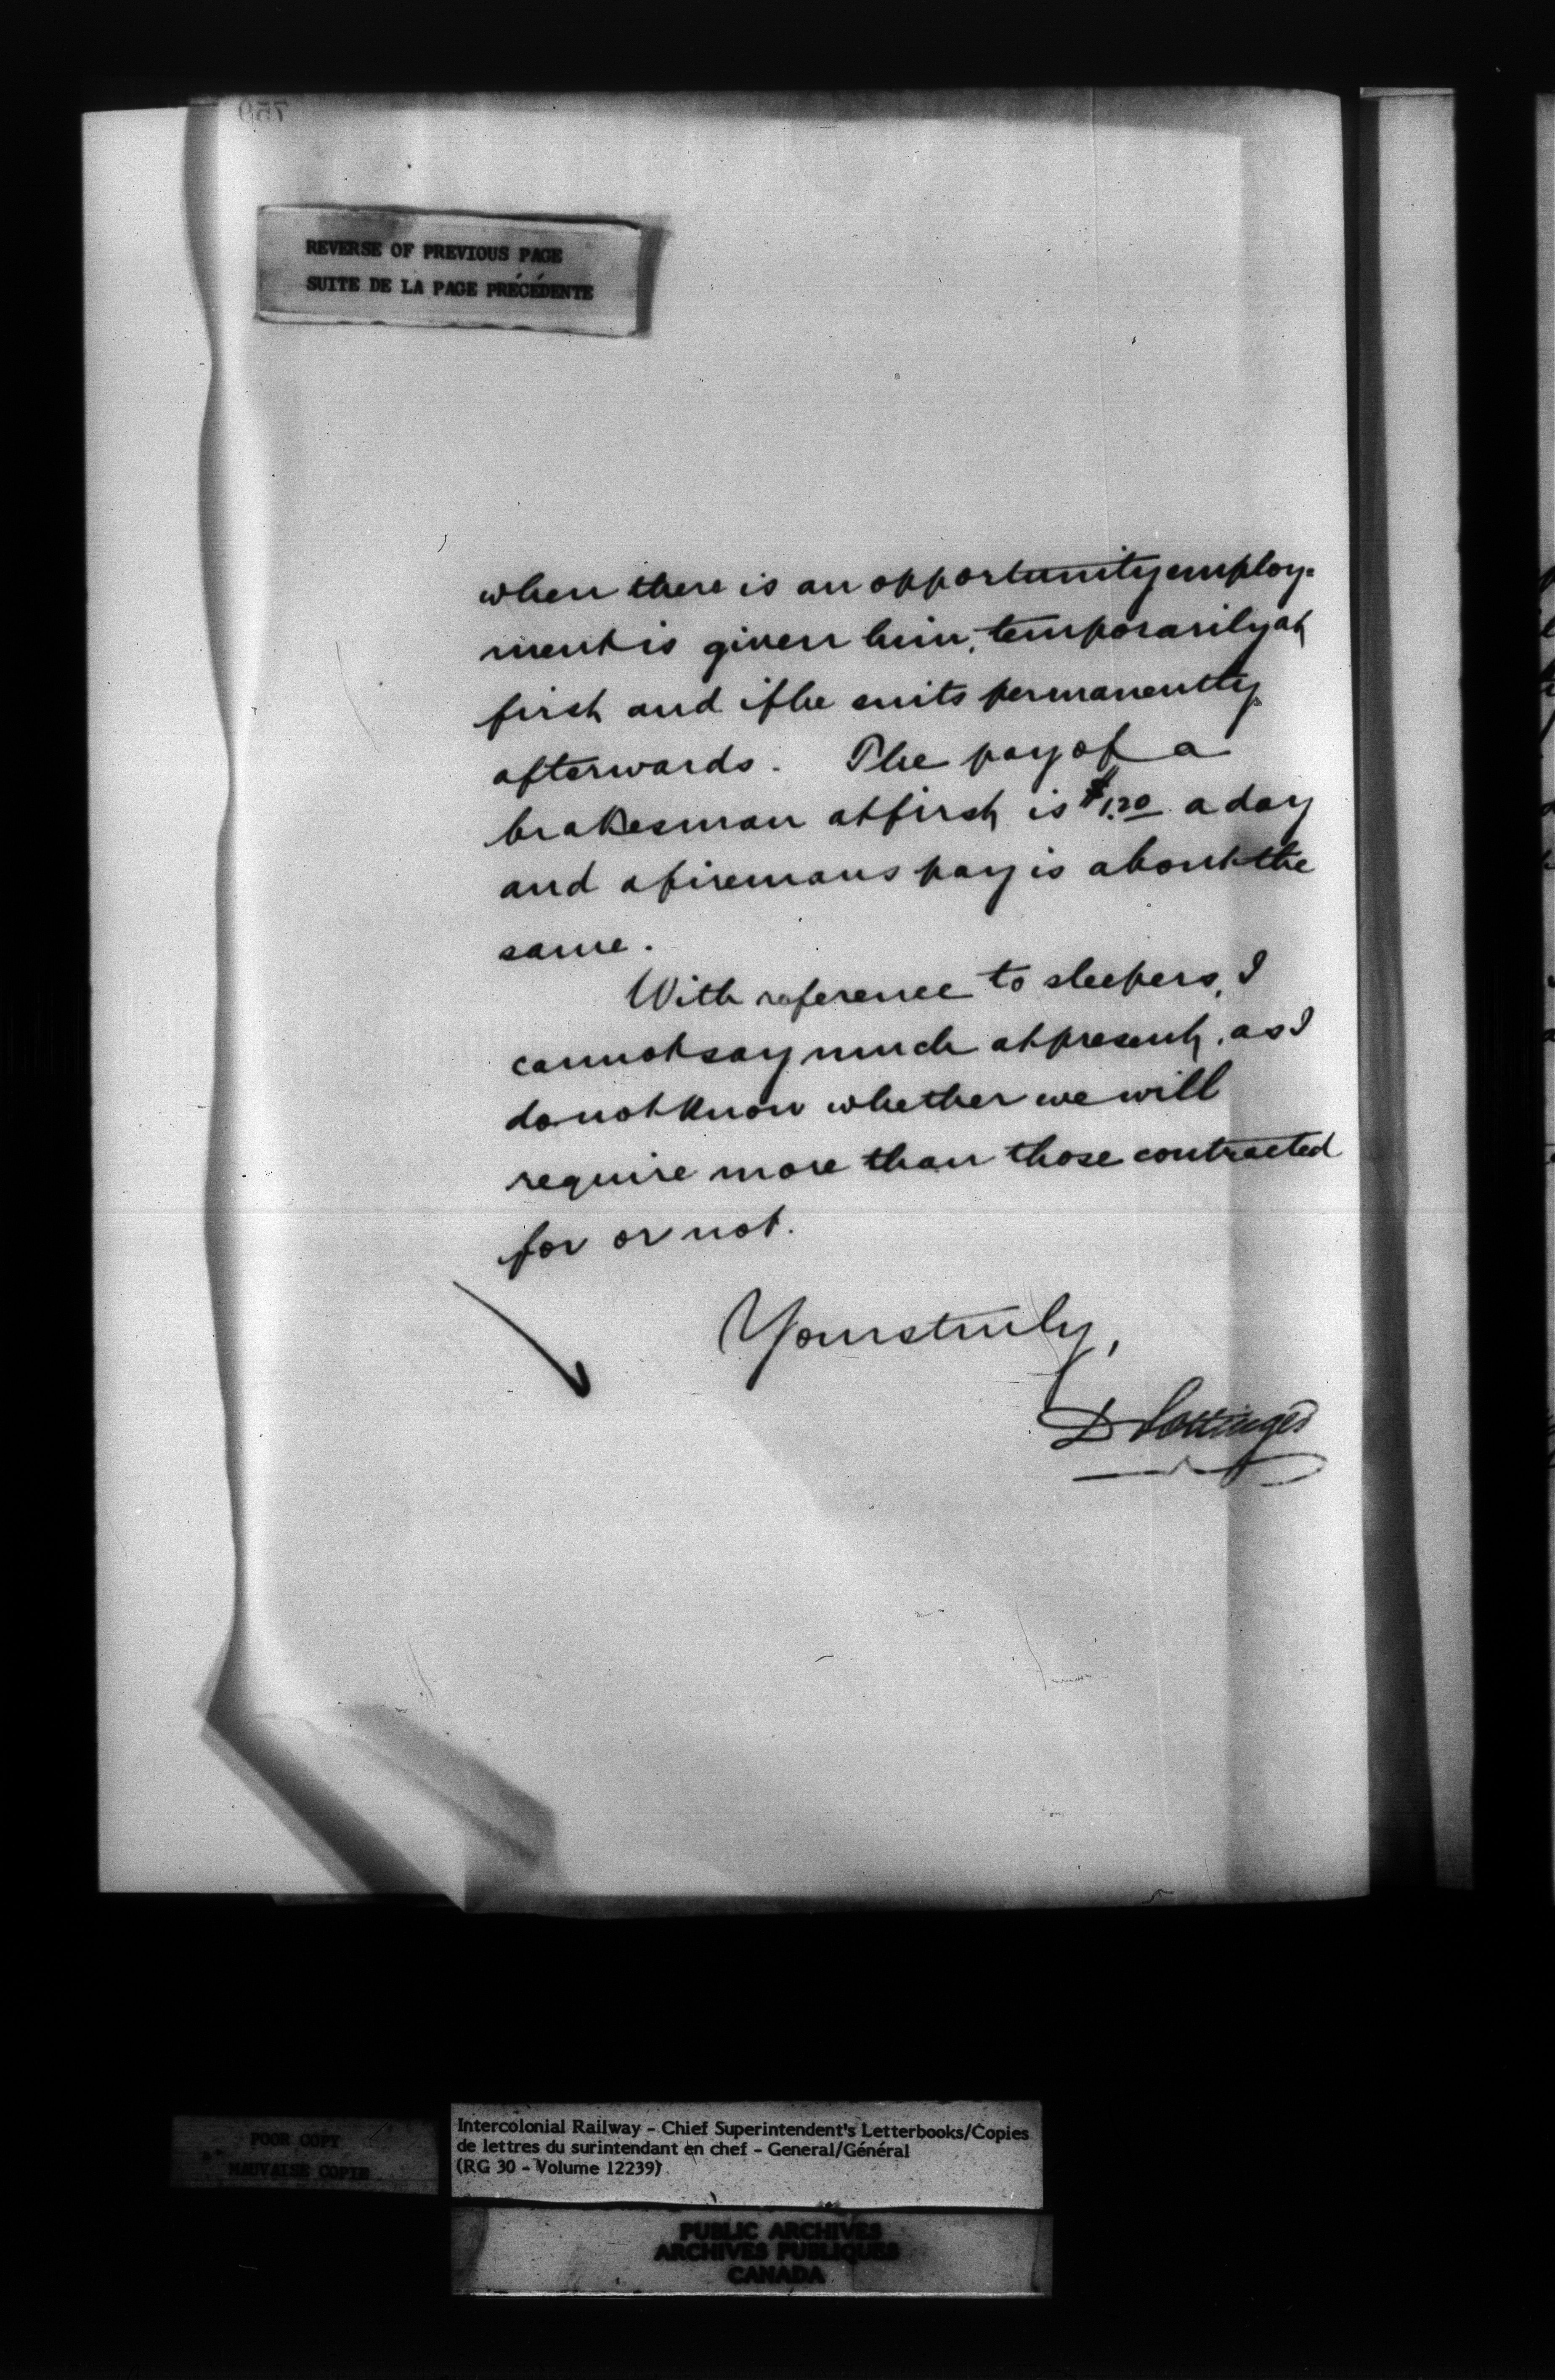 759
REVERSE OF PREVIOUS PAGE
SUITE DE LA PAGE PRÉCÉDENTE
when there is an opportunity employ=
ment is given him, temporarily at
first and if he suits permanently
afterwards. The pay of a
brakesman at first is $1.20 a day
and a firemans pay is about the
same.
With reference to sleepers, I
cannot say much at present, as I
do not know whether we will
require more than those contracted
for or not.
Yours truly,
D Pottinger
POOR COPY
MAUVAISE COPIE
Intercolonial Railway - Chief Superintendent's Letterbooks/Copies
de lettres du surintendant en chef - General/Général
(RG 30 - Volume 12239)
PUBLIC ARCHIVES
ARCHIVES PUBLIQUES
CANADA